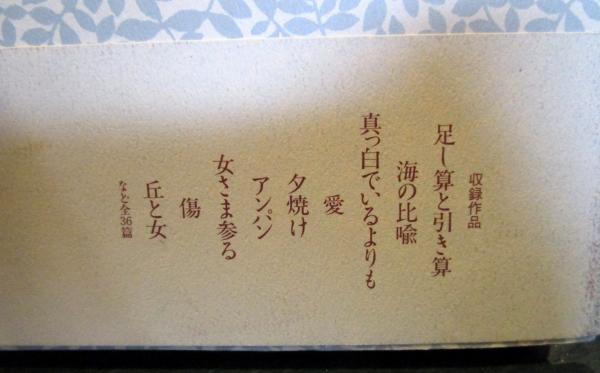 収録作品
足し算と引き算
海の比喩
真っ白でいるよりも
愛
夕焼け
アンパン
女さま参る
傷
丘と女
など全36篇